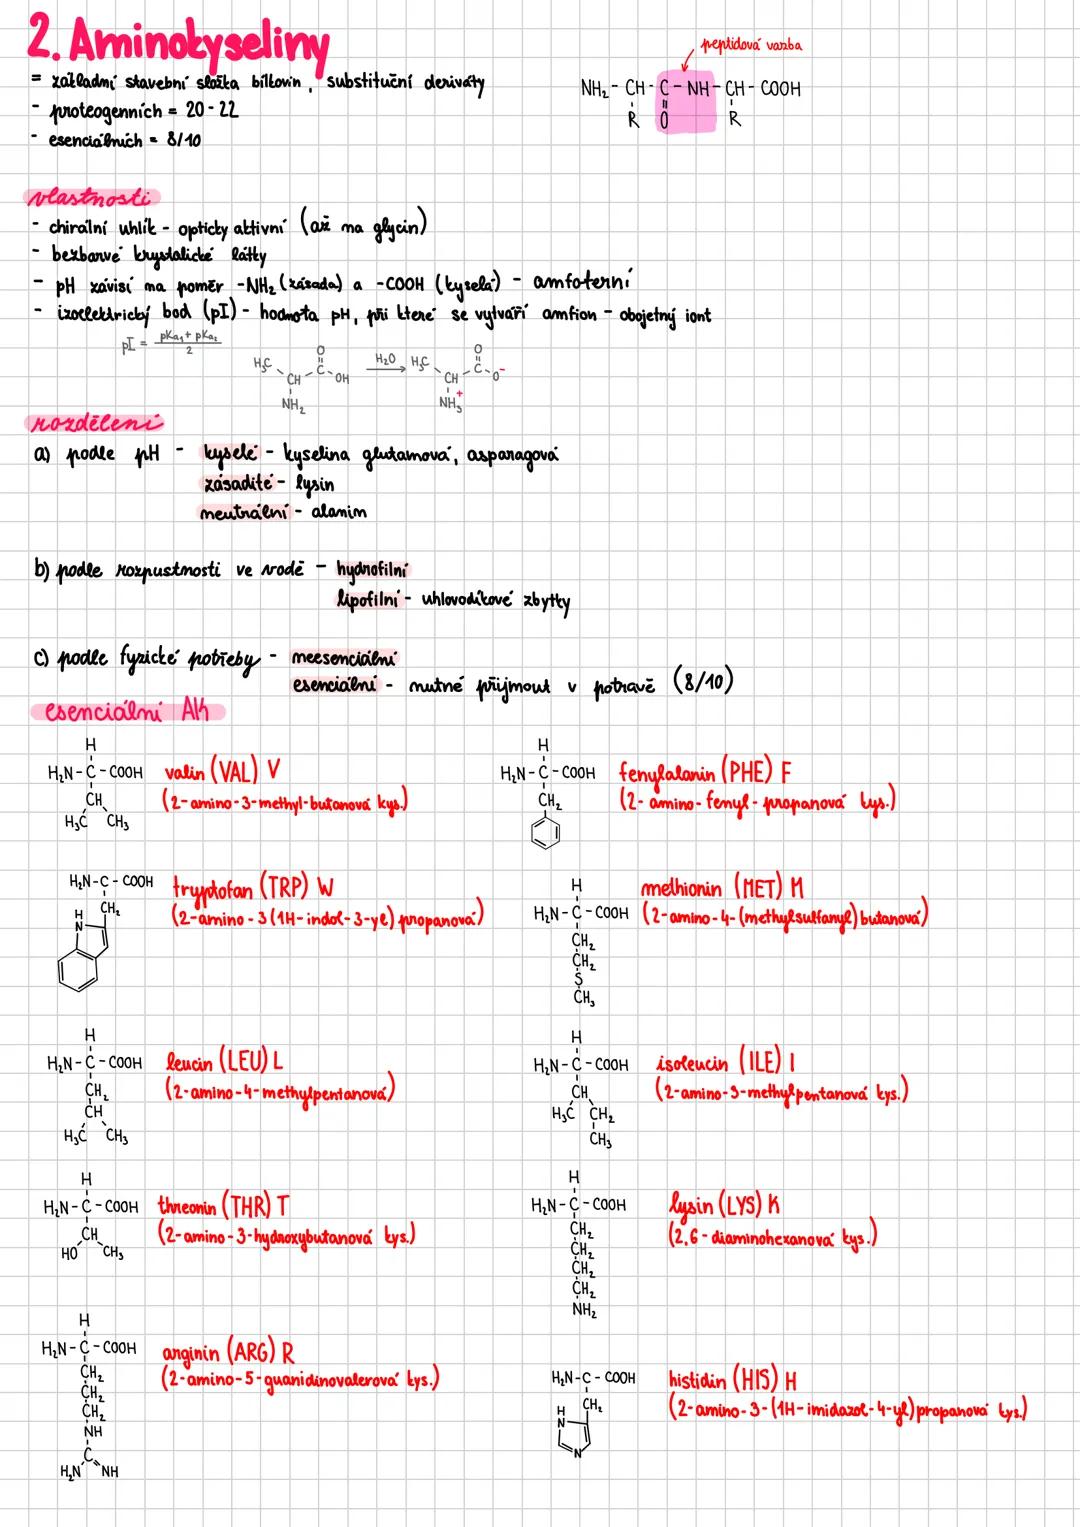 2. Aminokyseliny
= základní stavební složka bílkovin, substituční deriváty
- proteogenních = 20-22
- esenciálních = 8/10
peptidová vazba
NH₂ - CH - C - NH - CH - COOH
R O R
vlastnosti
- chirální uhlík - opticky aktivní (až na glycin)
- bezbarvé krystalické látky
- pH závisí na poměr -NH₂ (zásada) a -COOH (kyselá) - amfoterní
- izoelektrický bod (pI) - hodnota pH, při které se vytváří amfion - obojetný iont
pI = pKa₁ + pKa₂
2
O O
H₃C C H₂O H₃C C
CH OH CH O⁻
NH₂ NH₃⁺
rozdělení
a) podle pH - kyselé - kyselina glutamová, asparagová
zásadité - lysin
neutrální - alanin
b) podle rozpustnosti ve vodě - hydrofilní
lipofilní - uhlovodíkové zbytky
c) podle fyzické potřeby - neesenciální
esenciální - nutné přijmout v potravě (8/10)
esenciální AK
H
H₂N - C - COOH valin (VAL) V
CH (2-amino-3-methyl-butanová kys.)
H₃C CH₃
H
H₂N - C - COOH fenylalanin (PHE) F
CH₂ (2-amino-fenyl-propanová kys.)
H₂N - C - COOH tryptofan (TRP) W
CH₂ (2-amino-3(1H-indol-3-yl) propanová)
H
N
H methionin (MET) M
H₂N - C - COOH (2-amino-4-(methylsulfanyl) butanová)
CH₂
CH₂
S
CH₃
H
H₂N - C - COOH leucin (LEU) L
CH₂ (2-amino-4-methylpentanová)
CH
H₃C CH₃
H
H₂N - C - COOH isoleucin (ILE) I
CH (2-amino-3-methylpentanová kys.)
H₃C CH₂
CH₃
H
H₂N - C - COOH threonin (THR) T
CH (2-amino-3-hydroxybutanová kys.)
HO CH₃
H
H₂N - C - COOH lysin (LYS) K
CH₂ (2,6-diaminohexanová kys.)
CH₂
CH₂
CH₂
NH₂
H
H₂N - C - COOH arginin (ARG) R
CH₂ (2-amino-5-guanidinovalerová kys.)
CH₂
CH₂
NH
C
H₂N NH
H₂N - C - COOH histidin (HIS) H
CH₂ (2-amino-3-(1H-imidazol-4-yl)propanová kys.)
H
N
N